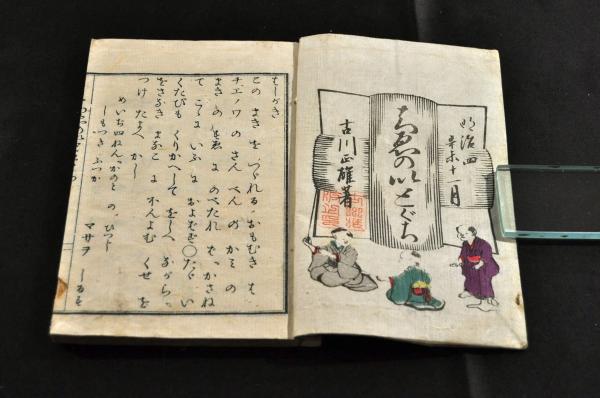 明治四
辛未十一月
ちゑのいとぐち
古川正雄著
はしがき
この まき を つゞれる おもむき は
チエノワ の さん べん の かみ の
まき の すゑ に のべたれ ど かさね
て こゝに いふ
くたびも くりかへして をしへ ながら
をさなき まなこ に ほんよむ くせ を
つけ たまへ かし
めいぢ 四ねん かのと の ひつじ
しもつき ふつか
マサヲ しるす